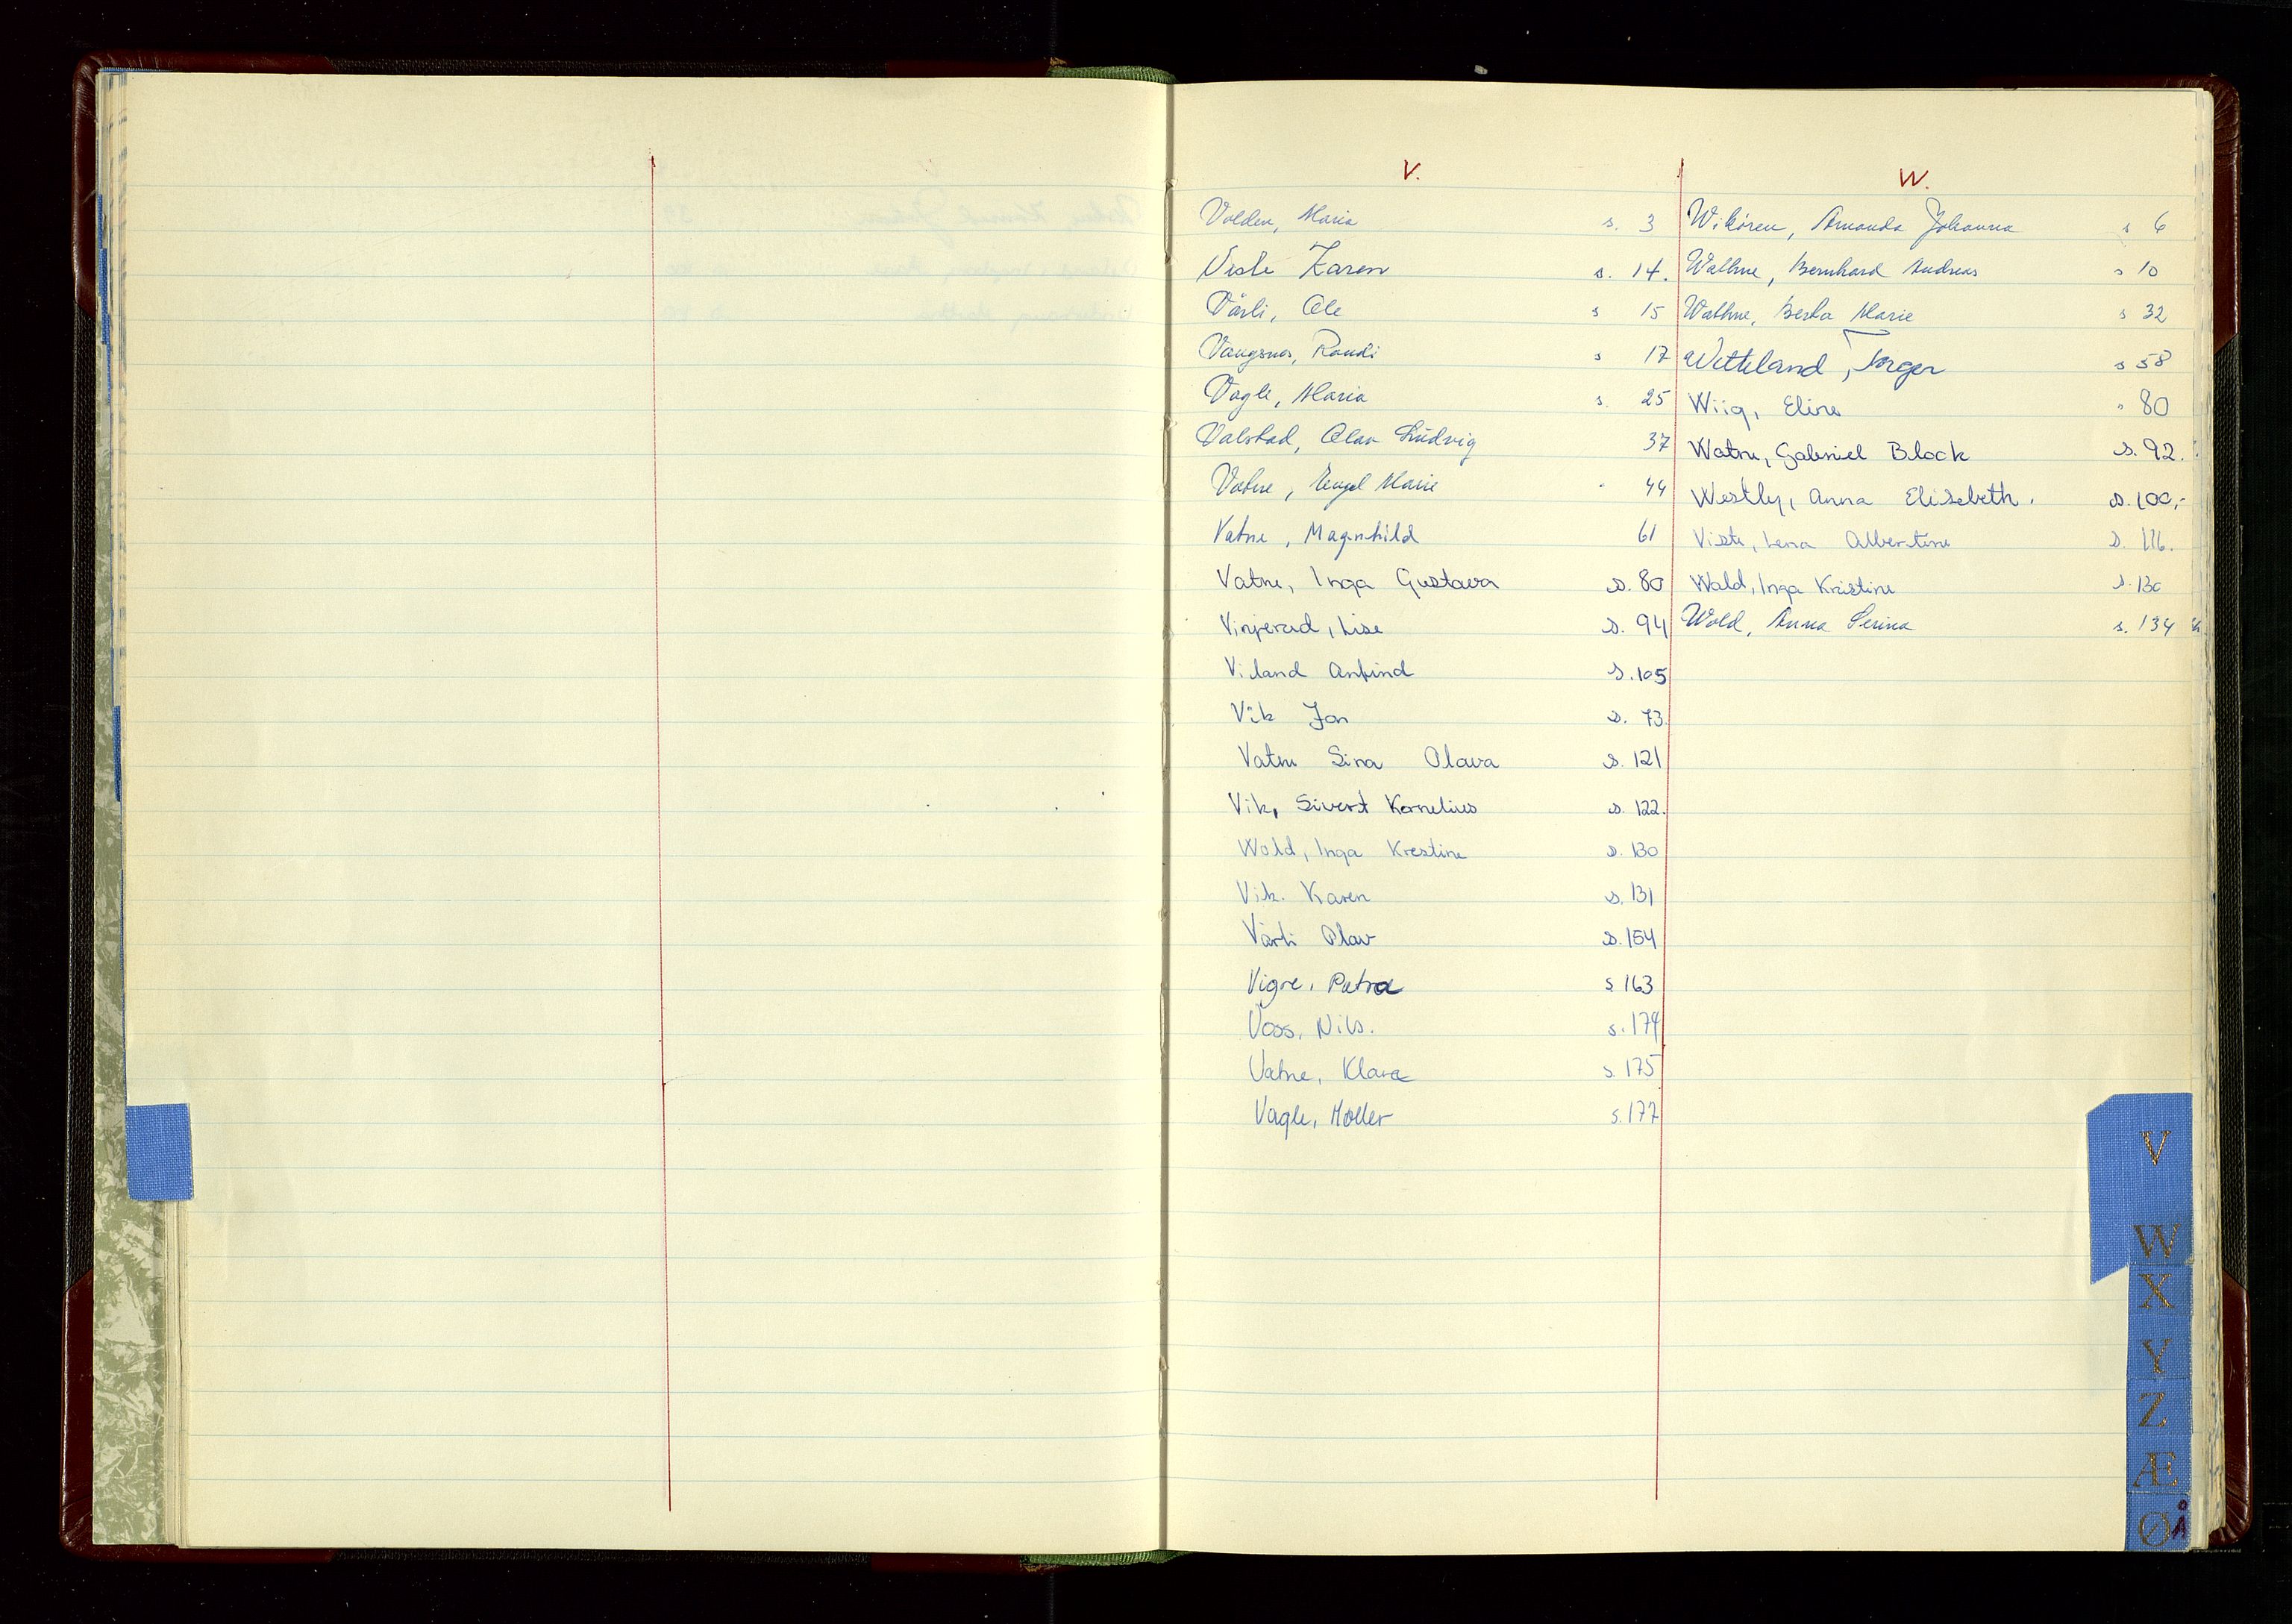 V.
Volden, Maria s. 3
Viste Karen s. 14.
Vårli, Ole s 15
Vangsnes, Randi s 17
Vagle, Maria s. 25
Valstad, Olav Ludvig 37
Vatne, Engel Marie 44
Vatne, Magnhild 61
Vatne, Inga Gustava s. 80
Vinjerud, Lise s. 94
Viland Anfind s. 105
Vik Jon s. 73.
Vatne Sina Olava s. 121
Vik, Sivert Kornelius s. 122.
Wold, Inga Krestine s. 130
Vik. Karen s. 131
Vårli Olav s. 154
Vigre, Petra s 163
Voss, Nils. s. 174
Vatne, Klara s. 175
Vagle, Møller s. 177
W.
Wikøren, Amanda Johanna s 6
Wathne, Bernhard Andreas s 10
Wathne, Berta Marie s 32
Wetteland, Torger s 58
Wiig, Elin 80
Watne, Gabriel Block s. 92.
Westly, Anna Elisabeth. s. 100,-
Viste, Lena Albertine s. 116.
Wald, Inga Kristine s. 130
Wold, Anna Serina s. 134
V
W
X
Y
Z
Æ
Ø Å